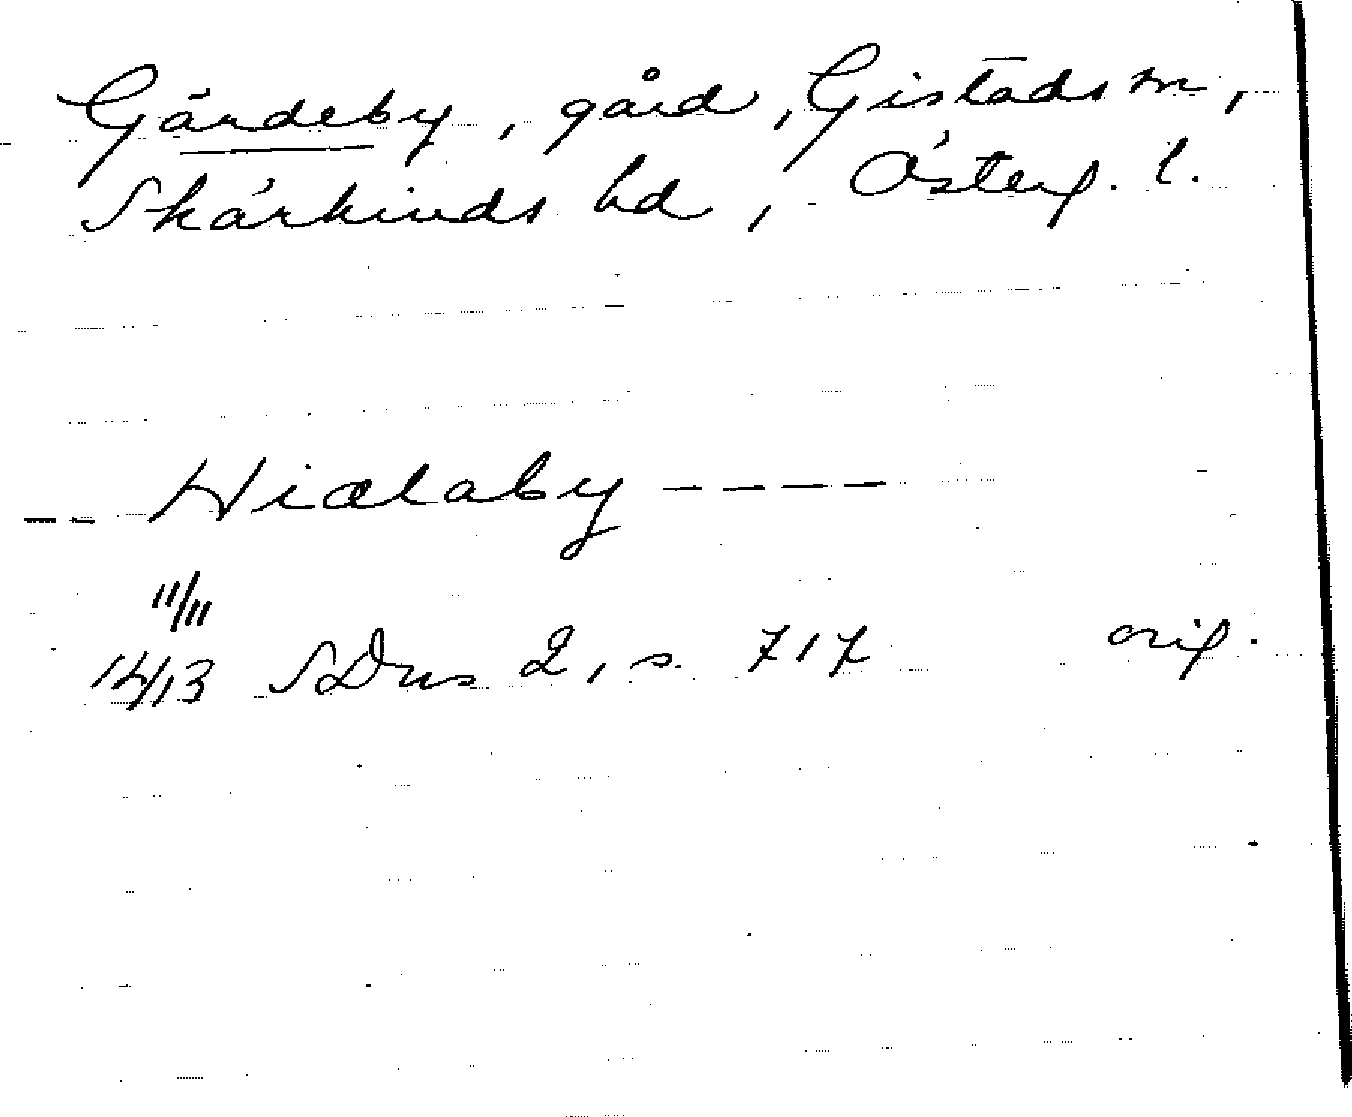 Gärdeby, gård, Gistads sn,
Skärkinds hd, Österg. l.
Hiælaby ----
11/11
1413 SDns 2, s. 717 orig.